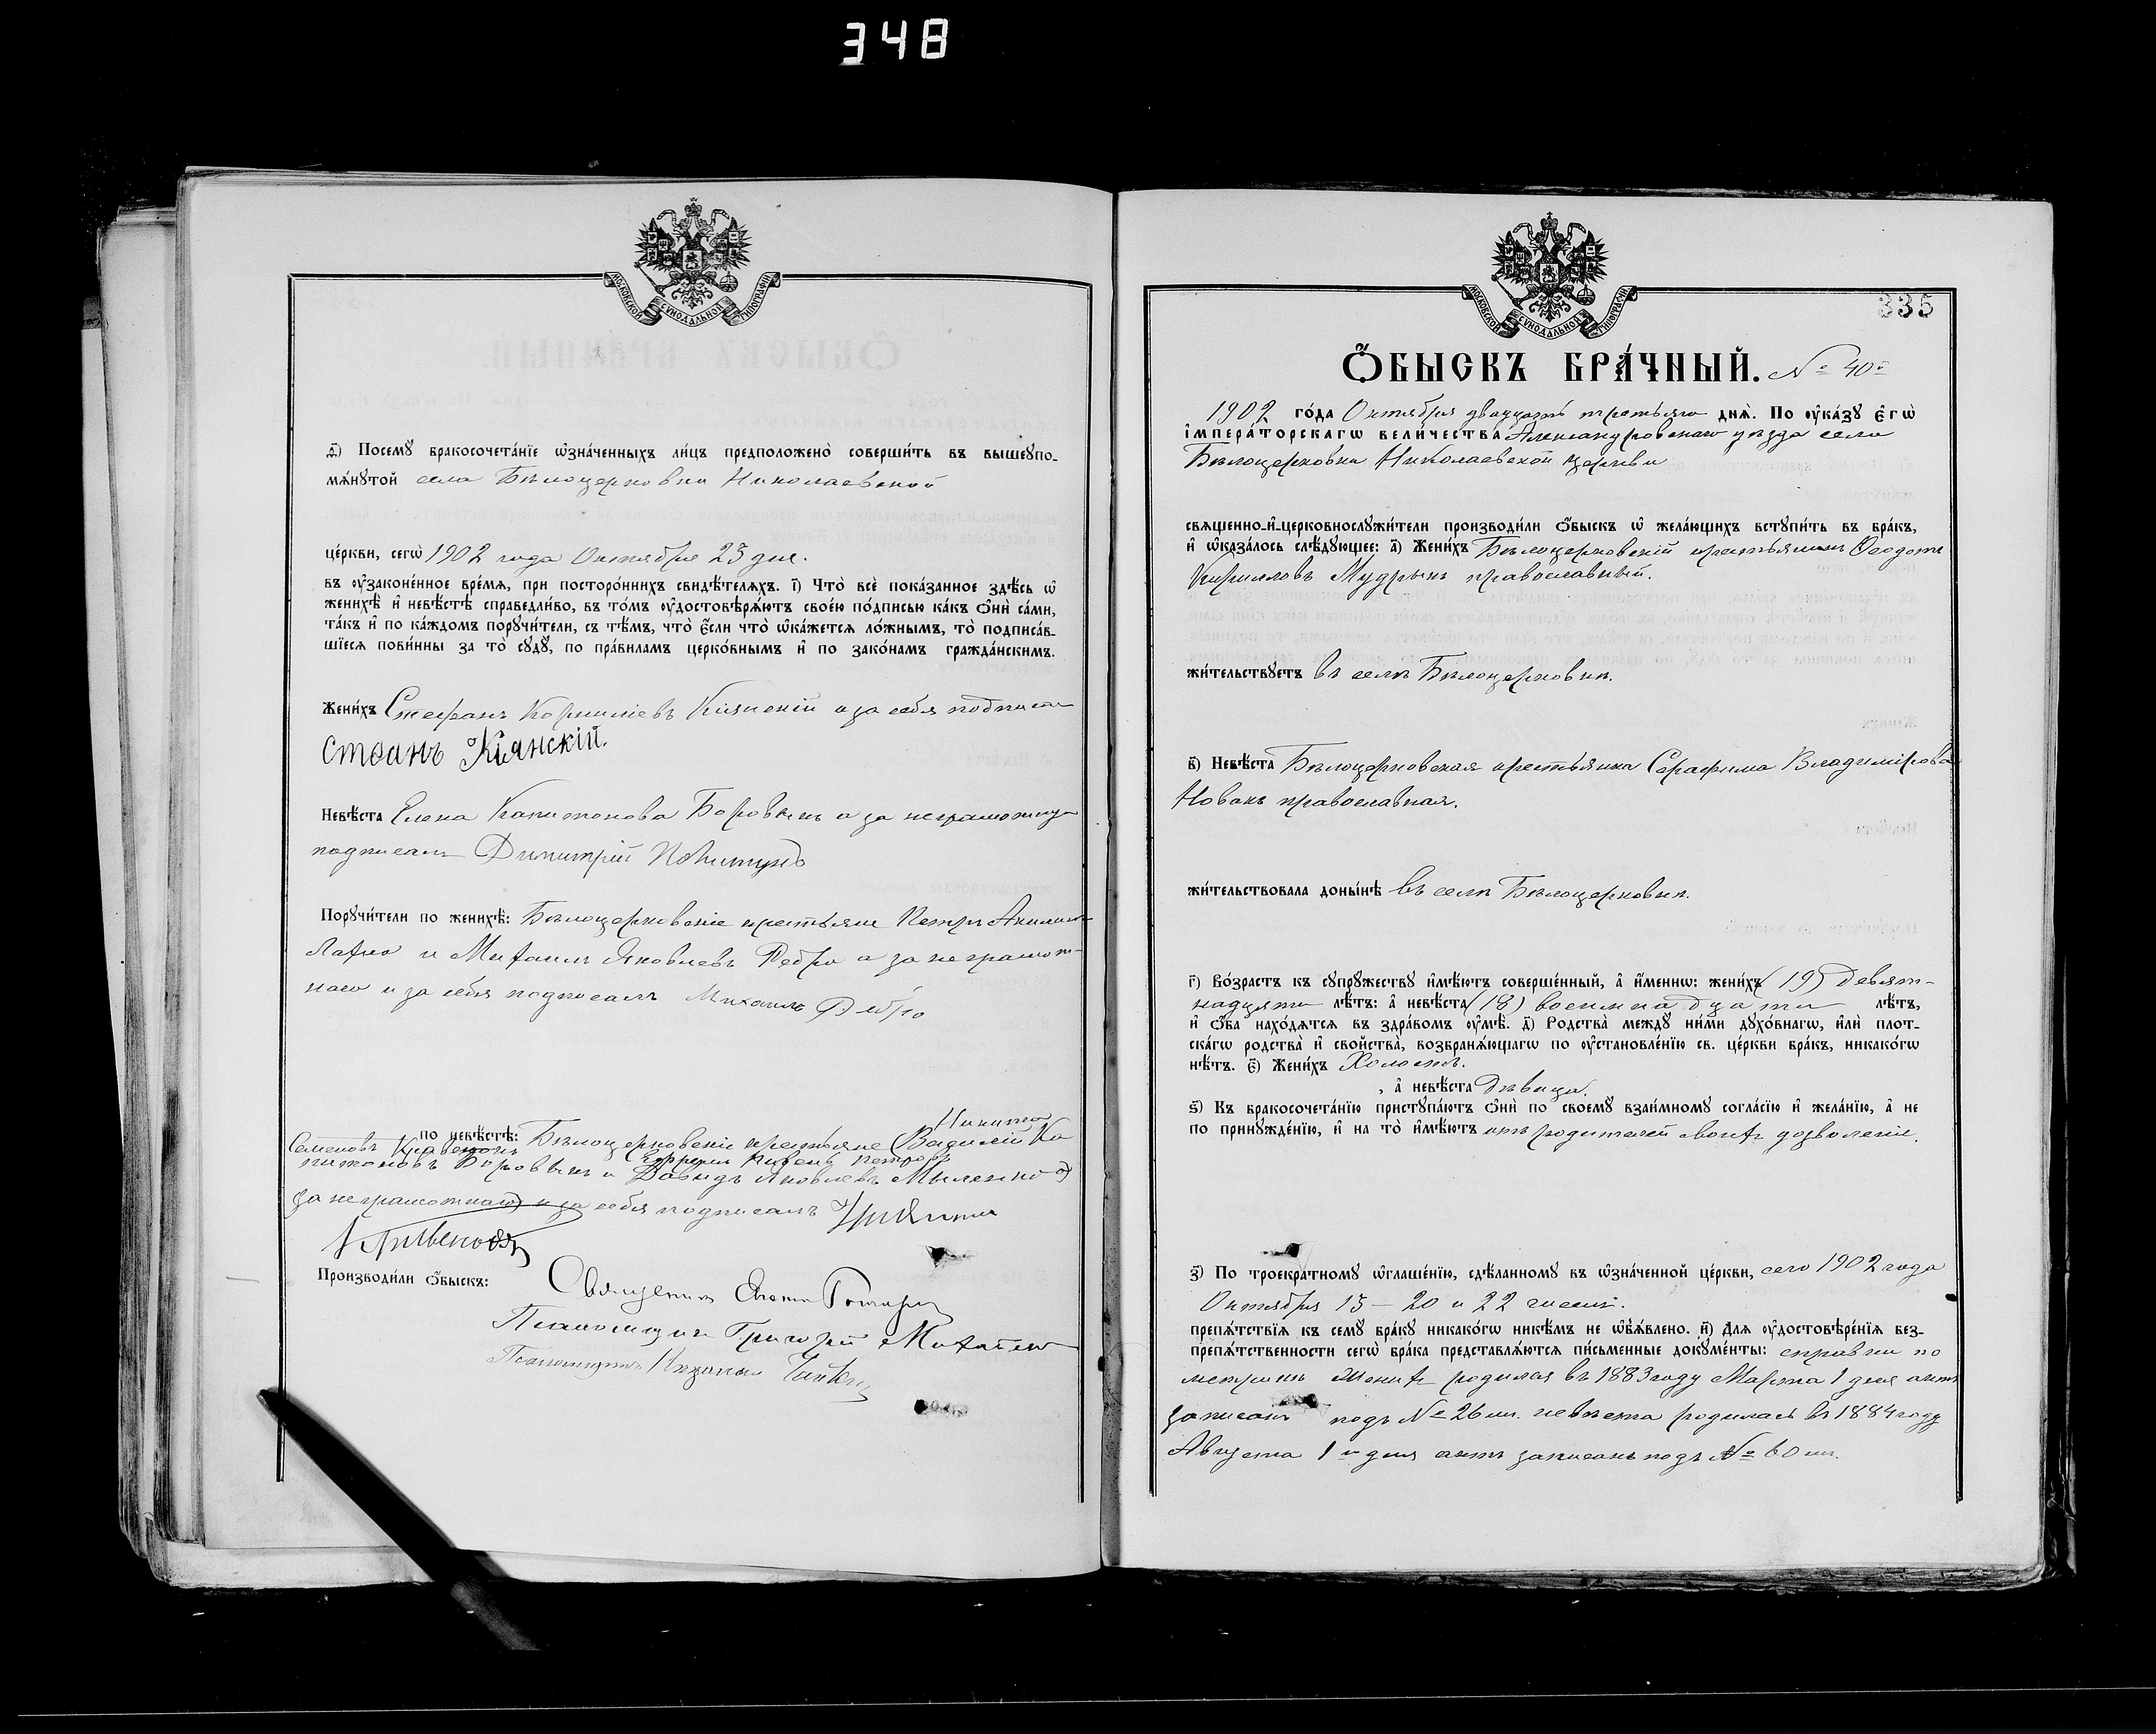 348
МОСКОВСКОЙ СѴНОДАЛЬНОЙ ТИПОГРАФІИ
ѳ҃) Посемꙋ бракосочета́нїе ѡ҆зна́ченныхъ ли́цъ предположено̀ соверши́ть въ вышеꙋпо-
мѧ́нꙋтой села Бѣлоцерковки Николаевской
це́ркви, сегѡ̀ 1902 года Октября 23 дня.
въ ᲂу҆законе́нное вре́мѧ, при посторо́ннихъ свидѣ́телѧхъ. і҃) Что̀ всѐ пока́занное здѣ́сь ѡ҆
женихѣ̀ и҆ невѣ́стѣ справедли́во, въ то́мъ ᲂу҆достовѣрѧ́ютъ свое́ю по́дписью ка́къ ѻ҆нѝ са́ми,
та́къ и҆ по ка́ждомъ порꙋчи́тели, съ тѣ́мъ, что̀ є҆́сли что̀ ѡ҆ка́жетсѧ ло́жнымъ, то̀ подписа́в-
шїесѧ пови́нны за то̀ сꙋдꙋ̀, по пра́виламъ церко́внымъ и҆ по зако́намъ гражда́нскимъ.
Жени́хъ Стефанъ Корниліевъ Кіянскій а за себя подписа
Стванъ Кіянскій.
Невѣ́ста Елена Капитонова Боровикъ а за неграмотную
подписалъ Димитрій
Порꙋчи́тели по женихѣ̀: Бѣлоцерковскіе крестьяне Петръ Акимовъ
Лахно и Михаилъ Яковлевъ Ребро а за неграмот-
наго и за себя подписалъ Михаилъ Ребро
Никита
по невѣ́стѣ: Бѣлоцерковскіе крестьяне (Василій Ка
Семеновъ Кравецовъ Ефремъ Петровъ
питоновъ Боровикъ и Давидъ Яковлевъ а)
за неграмотнаго) и за себя подписалъ Никита
Производи́ли ѻ҆́быскъ: Священникъ
Псаломщикъ Григорій
Псаломщикъ
МОСКОВСКОЙ СѴНОДАЛЬНОЙ ТИПОГРАФІИ
335
Ѻ҆́БЫСКЪ БРА́ЧНЫЙ. № 40й
1902 го́да Октября двадцать третьяго днѧ̀. По ᲂу҆ка́зꙋ є҆гѡ̀
і҆мпера́торскагѡ вели́чества Александровскаго уѣзда села
Бѣлоцерковки Николаевской церкви
свѧще́нно-и҆-церковнослꙋжи́тели производи́ли ѻ҆́быскъ ѡ҆ жела́ющихъ встꙋпи́ть въ бра́къ,
и҆ ѡ҆каза́лось слѣ́дꙋющее: а҃) Жени́хъ Бѣлоцерковскій крестьянинъ Ѳеодотъ
Кирилловъ Мудрыкъ православный.
жи́тельствꙋетъ въ селѣ Бѣлоцерковкѣ.
в҃) Невѣ́ста Бѣлоцерковская крестьянка Серафима Владимірова
Новакъ православная.
жи́тельствовала доны́нѣ въ селѣ Бѣлоцерковкѣ.
г҃) Во́зрастъ къ сꙋпрꙋ́жествꙋ и҆мѣ́ютъ соверше́нный, а҆ и҆́меннѡ: жени́хъ (19) Девят-
надцати лѣ́тъ: а҆ невѣ́ста (18) восемнадцати лѣ́тъ,
и҆ ѻ҆́ба нахо́дѧтсѧ въ здра́вомъ ᲂу҆мѣ̀. д҃) Родства̀ междꙋ̀ ни́ми дꙋхо́внагѡ, и҆лѝ плот-
ска́гѡ родства̀ и҆ сво́йства̀, возбранѧ́ющагѡ по ᲂу҆становле́нїю св. це́ркви бра́къ, никако́гѡ
нѣ́тъ. є҃) Жени́хъ Холостъ.
, а҆ невѣ́ста Дѣвица.
ѕ҃) Къ бракосочета́нїю пристꙋпа́ютъ ѻ҆нѝ по своемꙋ̀ взаи́мномꙋ согла́сїю и҆ жела́нїю, а҆ не
по принꙋжде́нїю, и҆ на то̀ и҆мѣ́ютъ отъ родителей своихъ дозволеніе.
з҃) По троекра́тномꙋ ѡ҆глаше́нїю, сдѣ́ланномꙋ въ ѡ҆зна́ченной це́ркви, сего 1902 года
Октября 13 — 20 и 22 чиселъ.
препѧ́тствїѧ къ семꙋ̀ бра́кꙋ никако́гѡ никѣ́мъ не ѡ҆б̾ѧ́влено. и҃) Длѧ ᲂу҆достовѣре́нїѧ без-
препѧ́тственности сегѡ̀ бра́ка представлѧ́ютсѧ пи́сьменные докꙋме́нты: справки по
метрикѣ Женихъ родился въ 1883 году Марта 1 дня актъ
записанъ подъ № 26 м. невѣста родилась въ 1884 году
Августа 1го дня актъ записанъ подъ № 60 м.